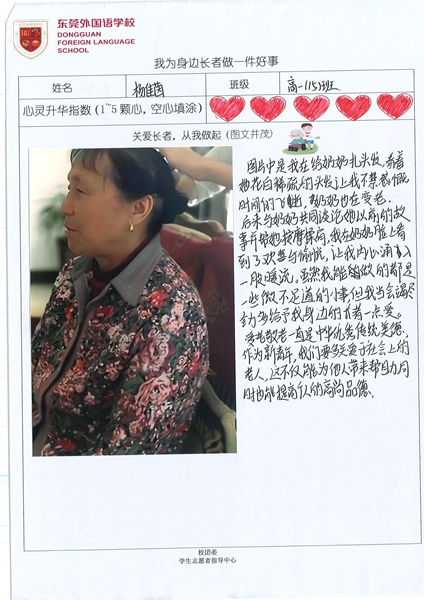 东莞外国语学校
DONGGUAN
FOREIGN LANGUAGE
SCHOOL
我为身边长者做一件好事
姓名
班级
高一(15)班
心灵升华指数(1~5颗心,空心填涂)
关爱长者,从我做起(图文并茂)
图片中是我在给奶奶扎头发,看着
她花白稀疏的头发让我不禁感慨
时间的飞逝,奶奶也在变老。
后来与奶奶共同谈论她以前的故
事并给她按摩肩膀,我在奶奶脸上看
到了欢喜与愉悦,让我内心涌入
一股暖流,虽然我能够做的都是
一些微不足道的小事,但我当会竭尽
全力多给予我身边的长者一点爱。
爱老敬老一直是中华优秀传统美德,
作为新青年,我们要多关爱于社会上的
老人,这不仅能为他人带来帮助,同
时也能提高自己的高尚品德。
校团委
学生志愿者指导中心